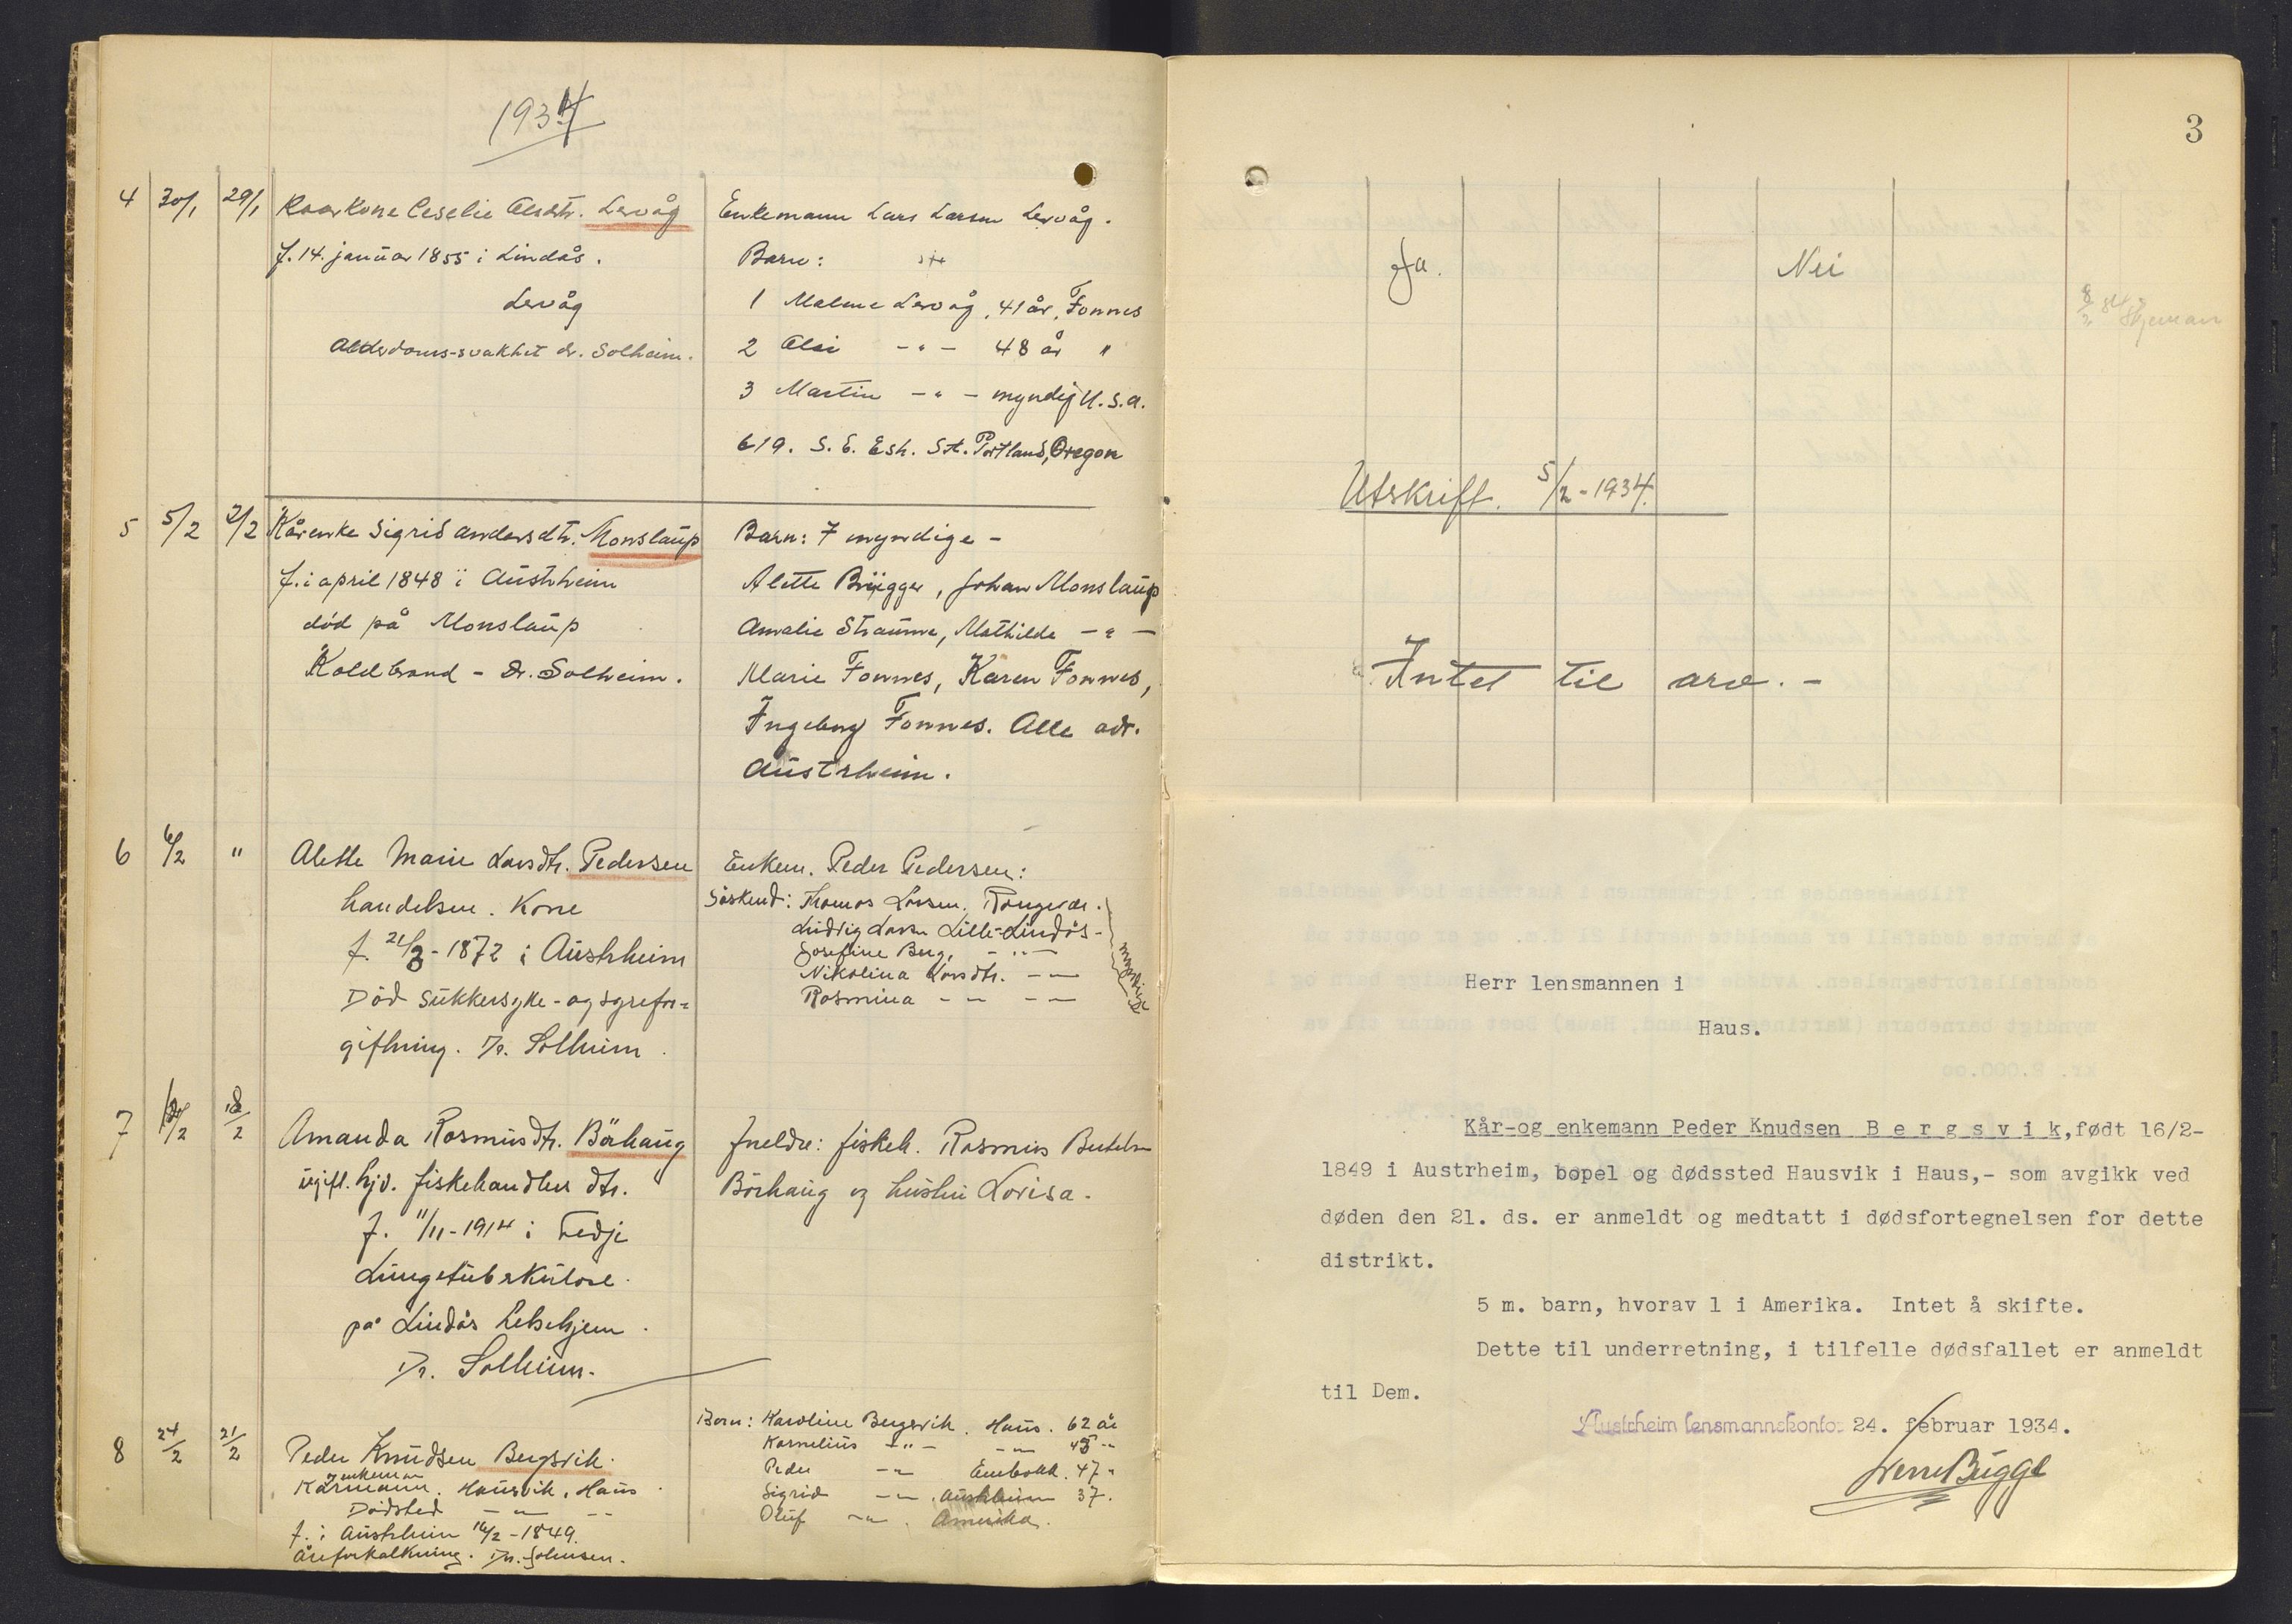 1934
4 30/1 29/1 Kaarkone Ceselie Olsdtr. Levåg
f. 14. januar 1855 i Lindås.
Levåg
Alderdoms-svakhet dr. Solheim.
Enkemann Lars Larsen Levåg.
Barn:
1 Malene Levåg, 41 år, Fonnes
2 Olai -"- 48 år "
3 Martin -"- myndig U.S.A.
619. S.E. Esh. St. Portland, Oregon
5 5/2 2/2 Kårenke Sigrid Andersdtr. Monslaup
f. i april 1848 i Austrheim
död på Monslaup
Koldbrand - Dr. Solheim.
Barn: 7 myndige -
Alette Brügger, Johan Monslaup
Amalie Straume, Mathilde -"-
Marie Fonnes, Karen Fonnes,
Ingeborg Fonnes. Alle adr.
Austrheim.
6 6/2 " Alette Marie Larsdtr. Pedersen
handelsm. Kone
f. 21/3-1872 i Austrheim
Död sukkersyke- og syrefor=
giftning. Dr. Solheim.
Enkem. Peder Pedersen:
Söskend: Thomas Larsen, Rongevær.
Ludvig Larsen Lille-Lindås-
Josefine Berg, -"-
Nikolina Larsdtr. -"-
Rasmina -"- -"-
myndige
7 18/2 Amanda Rasmusdtr. Börhaug
ugift. hjv. fiskehandler dtr.
f. 11/11-1914 i Fedje
Lungetuberkulose.
på Lindås helsehjem.
Dr. Solheim.
Foreldre: fiskeh. Rasmus Bertelsen
Börhaug og hustru Lovisa.
8 24/2 21/2 Peder Knudsen Bergsvik.
og enkemann
Kårmann. Hausvik, Haus.
Dödsted -"- -"-
f. i Austrheim 16/2-1849.
Åreforkalkning. Dr. Johnsen.
Born: Karoline Bergsvik. Haus. 62 år
Kornelius -"- -"- 45 "
Peder -"- 47 "
Sigrid -"-. Austrheim 37.
Oluf -"-. Amerika.
3
Ja. Nei
8/2 Skjemaer
Utskrift. 5/2-1934.
Intet til arv.-
Herr lensmannen i
Haus.
Kår-og enkemann Peder Knudsen B e r g s v i k, født 16/2-
1849 i Austrheim, bopel og dødssted Hausvik i Haus,- som avgikk ved
døden den 21. ds. er anmeldt og medtatt i dødsfortegnelsen for dette
distrikt.
5 m. barn, hvorav 1 i Amerika. Intet å skifte.
Dette til underretning, i tilfelle dødsfallet er anmeldt
til Dem.
Austrheim lensmannskontor 24. februar 1934.
Sverre Bugge